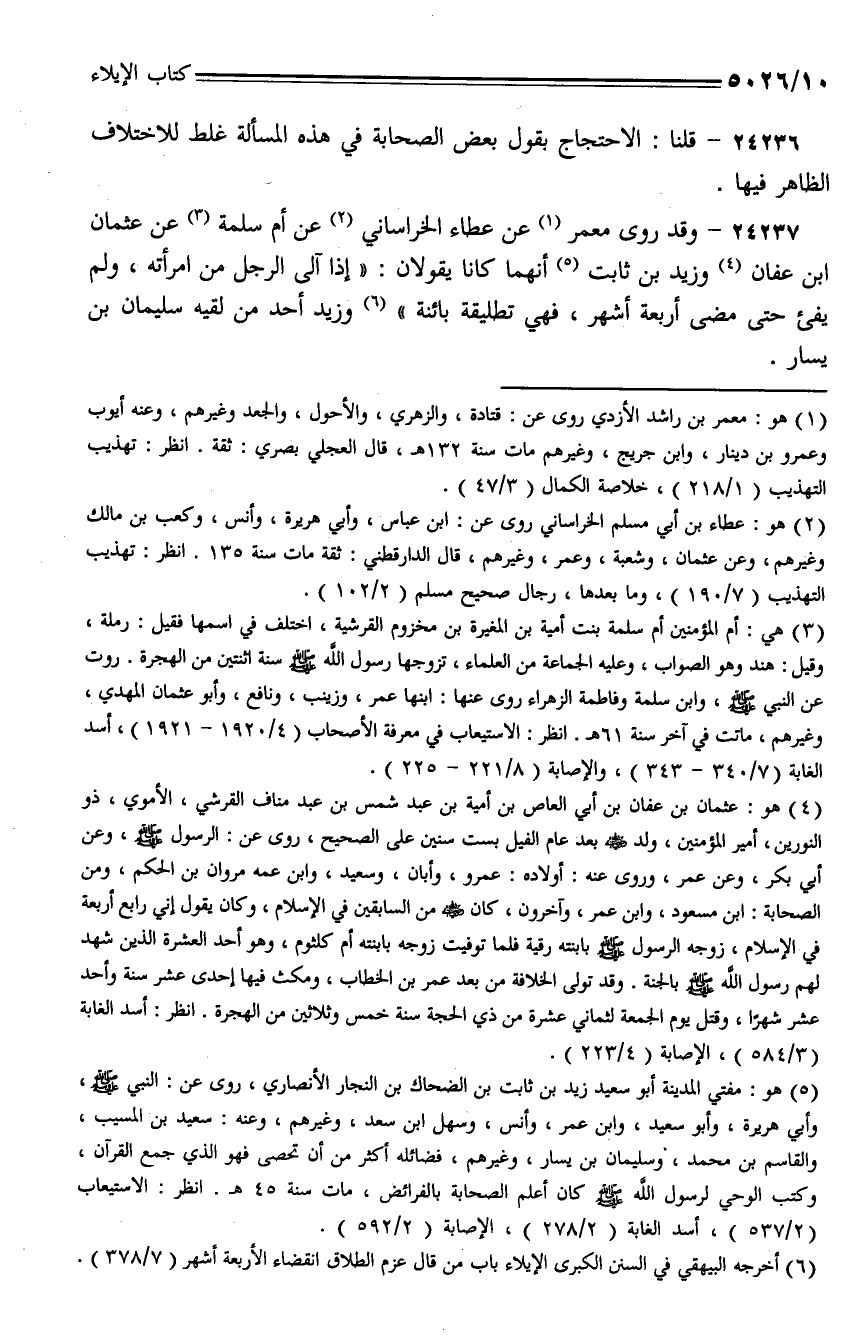 ٥٠٢٦/١٠ كتاب الإيلاء
٢٤٢٣٦ - قلنا : الاحتجاج بقول بعض الصحابة في هذه المسألة غلط للاختلاف
الظاهر فيها .
٢٤٢٣٧ - وقد روى معمر (١) عن عطاء الخراساني (٢) عن أم سلمة (٣) عن عثمان
ابن عفان (٤) وزيد بن ثابت (٥) أنهما كانا يقولان : « إذا آلى الرجل من امرأته ، ولم
يفئ حتى مضى أربعة أشهر ، فهي تطليقة بائنة » (٦) وزيد أحد من لقيه سليمان بن
يسار .
(١) هو : معمر بن راشد الأزدي روى عن : قتادة ، والزهري ، والأحول ، والجعد وغيرهم ، وعنه أيوب
وعمرو بن دينار ، وابن جريج ، وغيرهم مات سنة ١٣٢هـ ، قال العجلي بصري : ثقة . انظر : تهذيب
التهذيب ( ٢١٨/١ ) ، خلاصة الكمال ( ٤٧/٣ ) .
(٢) هو : عطاء بن أبي مسلم الخراساني روى عن : ابن عباس ، وأبي هريرة ، وأنس ، وكعب بن مالك
وغيرهم ، وعن عثمان ، وشعبة ، وعمر ، وغيرهم ، قال الدارقطني : ثقة مات سنة ١٣٥ . انظر : تهذيب
التهذيب ( ١٩٠/٧ ) ، وما بعدها ، رجال صحيح مسلم ( ١٠٢/٢ ) .
(٣) هي : أم المؤمنين أم سلمة بنت أمية بن المغيرة بن مخزوم القرشية ، اختلف في اسمها فقيل : رملة ،
وقيل : هند وهو الصواب ، وعليه الجماعة من العلماء ، تزوجها رسول اللَّه ﷺ سنة اثنتين من الهجرة . روت
عن النبي ﷺ ، وابن سلمة وفاطمة الزهراء روى عنها : ابنها عمر ، وزينب ، ونافع ، وأبو عثمان المهدي ،
وغيرهم ، ماتت في آخر سنة ٦١هـ . انظر : الاستيعاب في معرفة الأصحاب ( ١٩٢٠/٤ - ١٩٢١ ) ، أسد
الغابة ( ٣٤٠/٧ - ٣٤٣ ) ، والإصابة ( ٢٢١/٨ - ٢٢٥ ) .
(٤) هو : عثمان بن عفان بن أبي العاص بن أمية بن عبد شمس بن عبد مناف القرشي ، الأموي ، ذو
النورين ، أمير المؤمنين ، ولد ﷺ بعد عام الفيل بست سنين على الصحيح ، روى عن : الرسول ﷺ ، وعن
أبي بكر ، وعن عمر ، وروى عنه : أولاده : عمرو ، وأبان ، وسعيد ، وابن عمه مروان بن الحكم ، ومن
الصحابة : ابن مسعود ، وابن عمر ، وآخرون ، كان من السابقين في الإسلام ، وكان يقول إني رابع أربعة
في الإسلام ، زوجه الرسول ﷺ بابنته رقية فلما توفيت زوجه بابنته أم كلثوم ، وهو أحد العشرة الذين شهد
لهم رسول اللَّه ﷺ بالجنة . وقد تولى الخلافة من بعد عمر بن الخطاب ، ومكث فيها إحدى عشر سنة وأحد
عشر شهرًا ، وقتل يوم الجمعة لثماني عشرة من ذي الحجة سنة خمس وثلاثين من الهجرة . انظر : أسد الغابة
( ٥٨٤/٣ ) ، الإصابة ( ٢٢٣/٤ ) .
(٥) هو : مفتي المدينة أبو سعيد زيد بن ثابت بن الضحاك بن النجار الأنصاري ، روى عن : النبي ﷺ ،
وأبي هريرة ، وأبو سعيد ، وابن عمر ، وأنس ، وسهل ابن سعد ، وغيرهم ، وعنه : سعيد بن المسيب ،
والقاسم بن محمد ، وسليمان بن يسار ، وغيرهم ، فضائله أكثر من أن تحصى فهو الذي جمع القرآن ،
وكتب الوحي لرسول اللَّه ﷺ كان أعلم الصحابة بالفرائض ، مات سنة ٤٥ هـ . انظر : الاستيعاب
( ٥٣٧/٢ ) ، أسد الغابة ( ٢٧٨/٢ ) ، الإصابة ( ٥٩٢/٢ ) .
(٦) أخرجه البيهقي في السنن الكبرى الإيلاء باب من قال عزم الطلاق انقضاء الأربعة أشهر ( ٣٧٨/٧ ) .